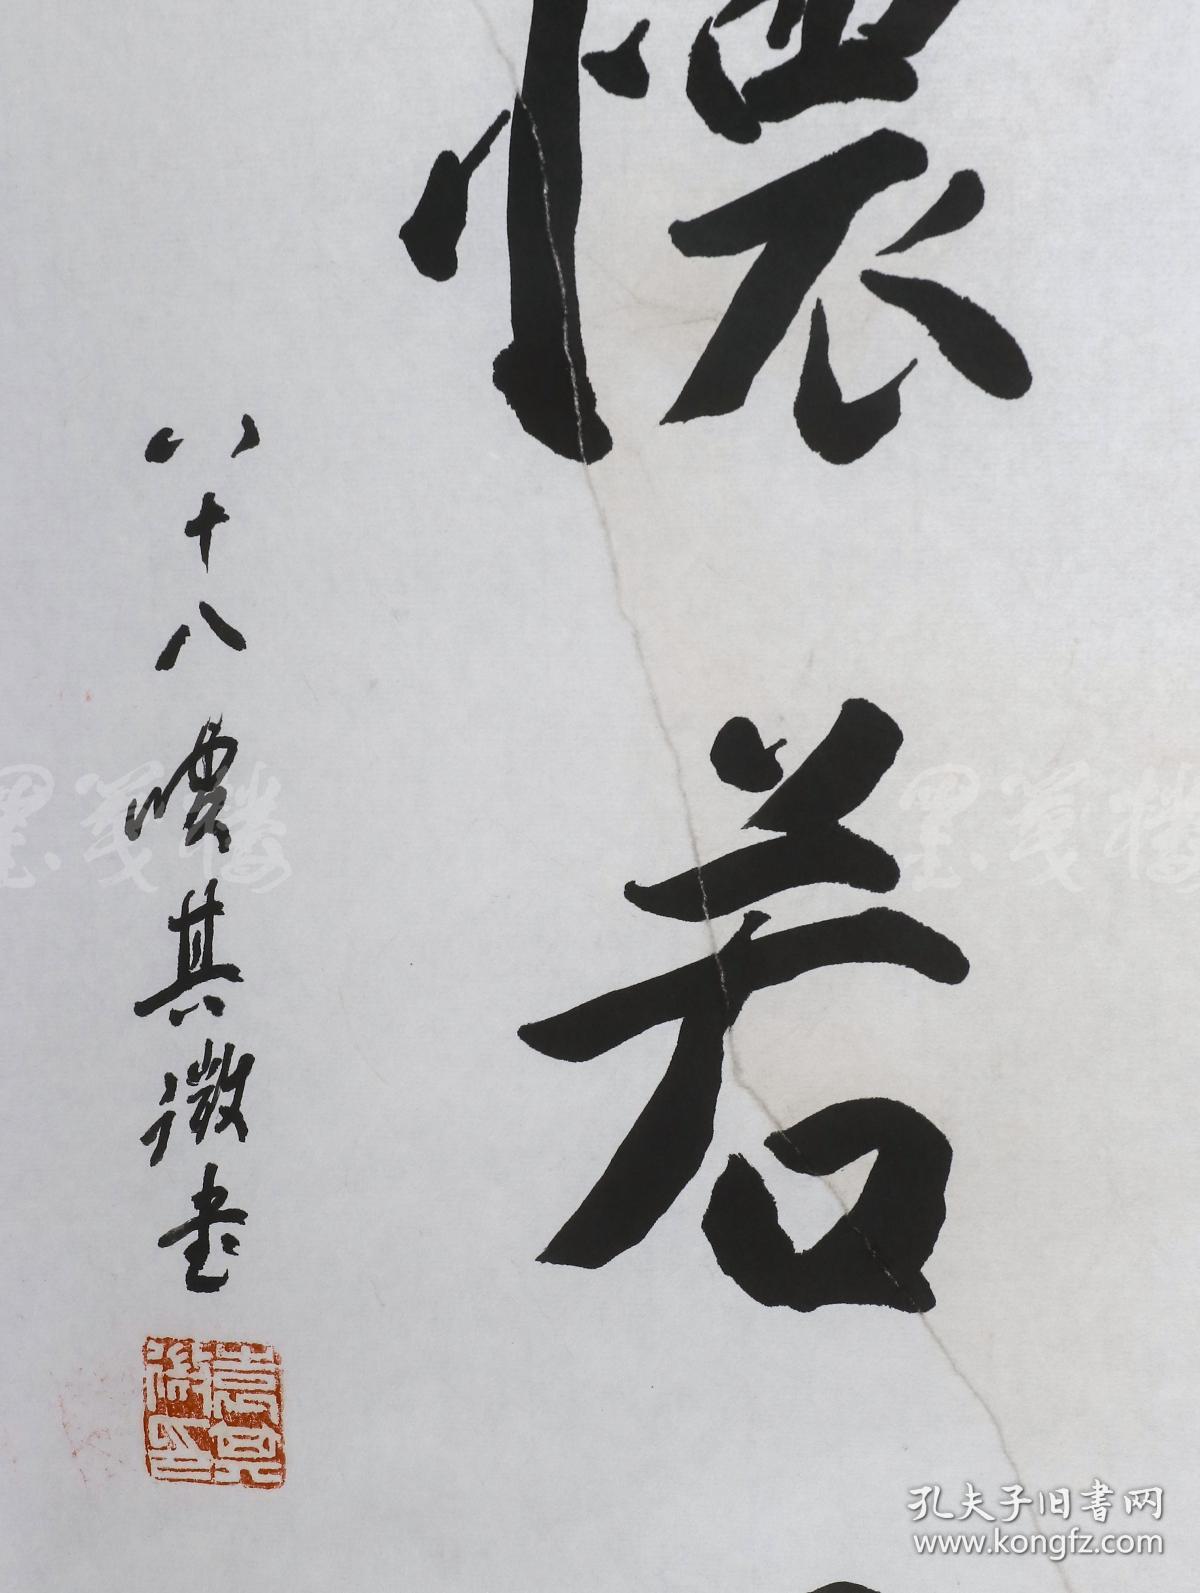 懷若
八十八嘜其微書
墨箋楼
墨箋楼
孔夫子旧书网
www.kongfz.com